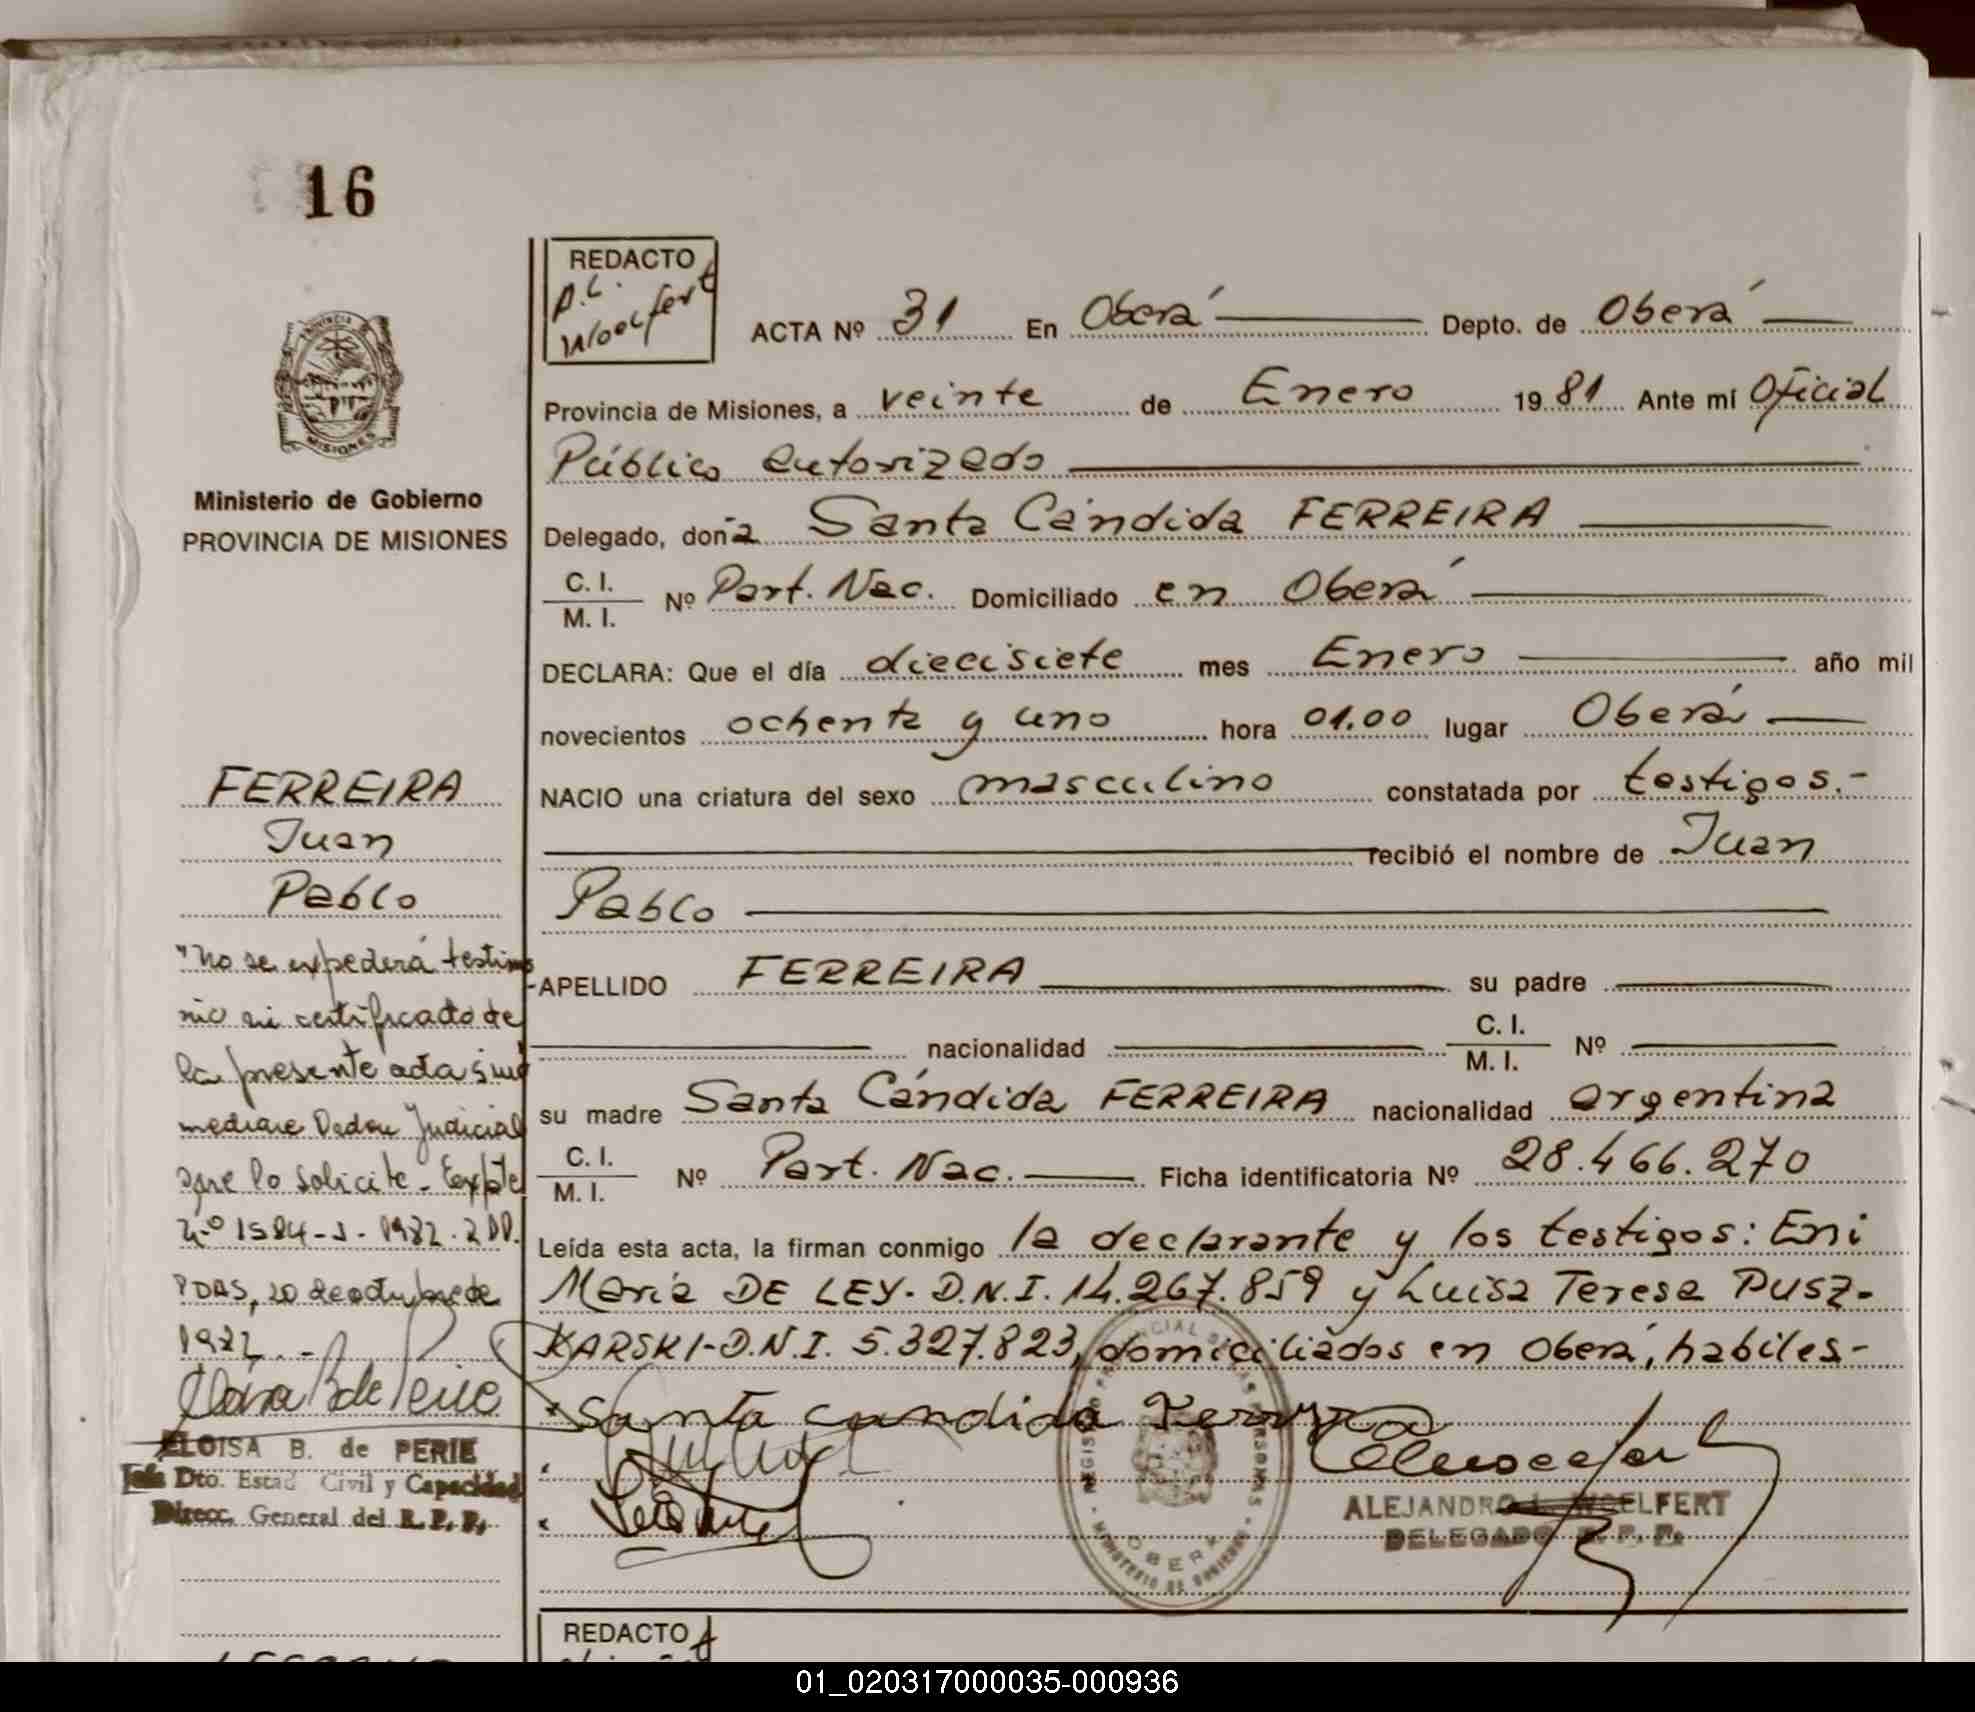 16
REDACTO
A.L.
Woelfert
ACTA Nº 31 En Oberá Depto. de Oberá
Provincia de Misiones, a veinte de Enero 1981 Ante mí Oficial
Público autorizado
Delegado, doña Santa Cándida FERREIRA
C. I.
M. I. Nº Part. Nac. Domiciliado en Oberá
DECLARA: Que el día diecisiete mes Enero año mil
novecientos ochenta y uno hora 01.00 lugar Oberá
NACIO una criatura del sexo masculino constatada por testigos.-
recibió el nombre de Juan
Pablo
APELLIDO FERREIRA su padre
nacionalidad C. I.
M. I. Nº
su madre Santa Cándida FERREIRA nacionalidad argentina
C. I.
M. I. Nº Part. Nac. Ficha identificatoria Nº 28.466.270
Leída esta acta, la firman conmigo la declarante y los testigos: Eni
María DE LEY- D.N.I. 14.267.859 y Luisa Teresa PUSZ-
KARSKI-D.N.I. 5.327.823, domiciliados en Oberá, habiles-
Santa candida Ferreyra
ALEJANDRO L. WOELFERT
DELEGADO R. P. P.
REGISTRO PROVINCIAL DE LAS PERSONAS
MINISTERIO DE GOBIERNO
OBERA
PROVINCIA DE
MISIONES
Ministerio de Gobierno
PROVINCIA DE MISIONES
FERREIRA
Juan
Pablo
"No se expederá testimo
nio ni certificado de
la presente acta sino
mediare Orden Judicial
que lo solicite- Expte
Nº 1584-J-1982.
PDAS, 20 de octubre de
1982.-
ELOISA B. de PERIE
Jefa Dto. Estad Civil y Capacidad
Direcc. General del R. P. P.
REDACTO
01_020317000035-000936